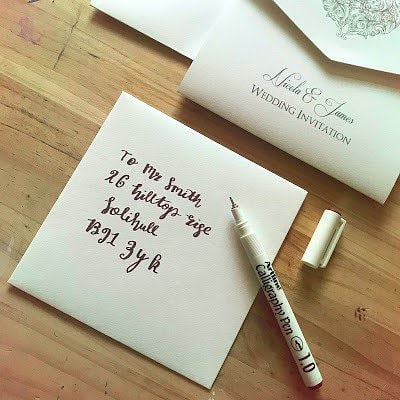 Nicola & James
WEDDING INVITATION
To Mr Smith
26 hilltop rise
Solihull
B91 3yh
Artline
Calligraphy Pen
1.0